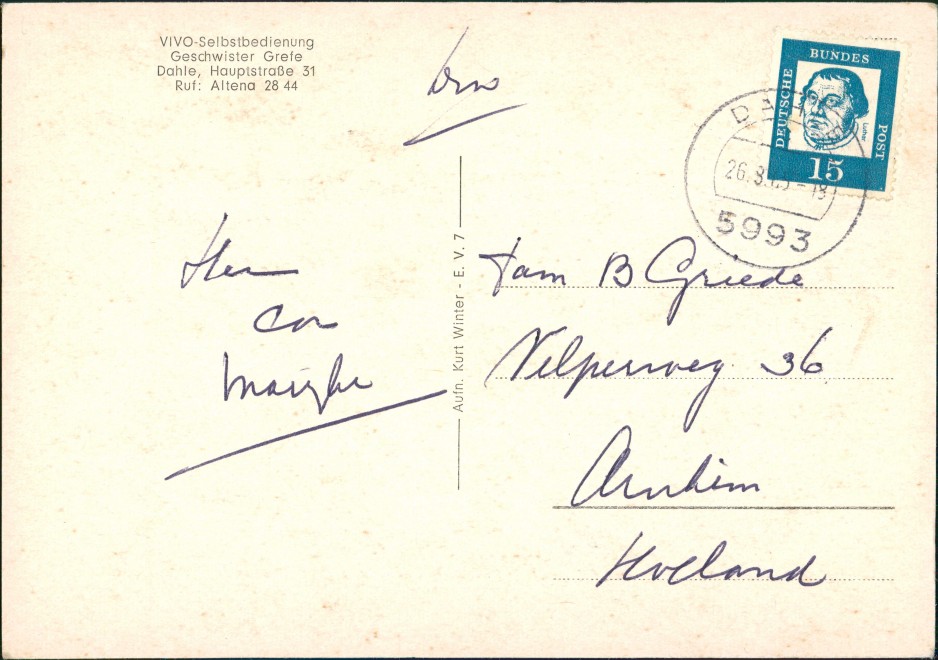 VIVO-Selbstbedienung
Geschwister Grefe
Dahle, Hauptstraße 31
Ruf: Altena 28 44
DEUTSCHE
BUNDES
POST
Luther
15
26.8. -18
5993
Aufn. Kurt Winter - E. V. 7
Fam B Griede
Velperweg 36
Arnhem
Holland
Cor